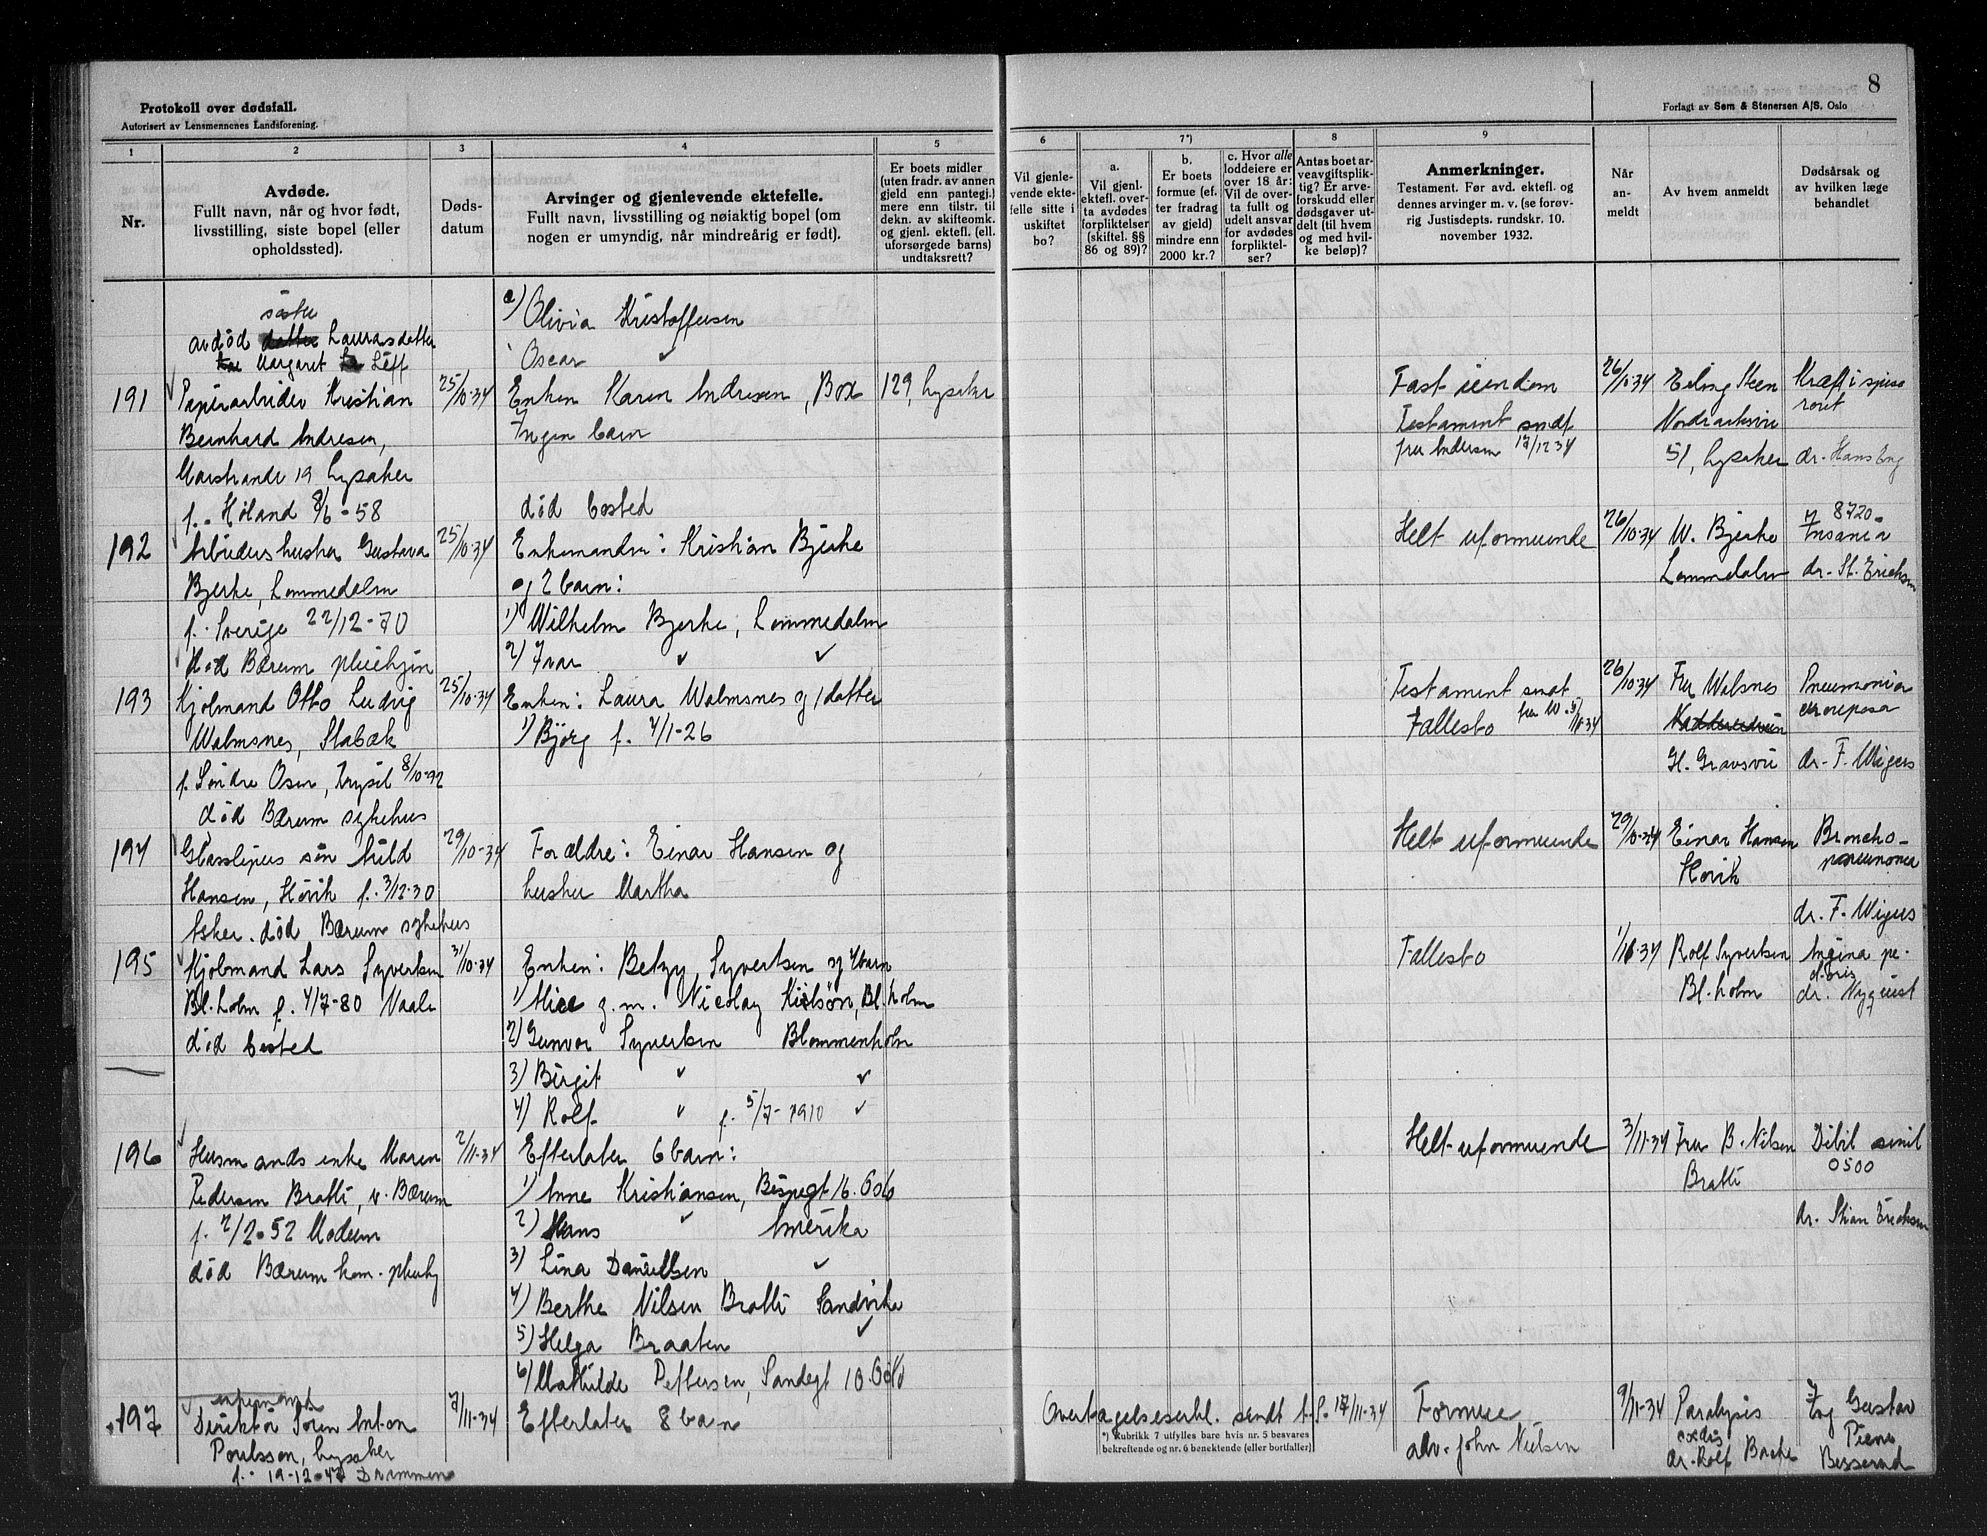 Protokoll over dødsfall.
Autorisert av Lensmennenes Landsforening.
8
Forlagt av Sem & Stenersen A/S. Oslo
1
2
3
4
5
6
7*)
8
9
Nr.
Avdøde.
Fullt navn, når og hvor født,
livsstilling, siste bopel (eller
opholdssted).
Døds-
datum
Arvinger og gjenlevende ektefelle.
Fullt navn, livsstilling og nøiaktig bopel (om
nogen er umyndig, når mindreårig er født).
Er boets midler
(uten fradr. av annen
gjeld enn pantegj.)
mere enn tilstr. til
dekn. av skifteomk.
og gjenl. ektefl. (ell.
uforsørgede barns)
undtaksrett?
Vil gjenle-
vende ekte-
felle sitte i
uskiftet
bo?
a.
Vil gjenl.
ektefl. over-
ta avdødes
forpliktelser
(skiftel. §§
86 og 89)?
b.
Er boets
formue (ef-
ter fradrag
av gjeld)
mindre enn
2000 kr.?
c. Hvor alle
loddeiere er
over 18 år:
Vil de over-
ta fullt og
udelt ansvar
for avdødes
forpliktel-
ser?
Antas boet ar-
veavgiftsplik-
tig? Er arve-
forskudd eller
dødsgaver ut-
delt (til hvem
og med hvil-
ke beløp)?
Anmerkninger.
Testament. Før avd. ektefl. og
dennes arvinger m. v. (se forøv-
rig Justisdepts. rundskr. 10.
november 1932.
Når
an-
meldt
Av hvem anmeldt
Dødsårsak og
av hvilken læge
behandlet
søster
avdød datter Laurasdatter
Margaret Leff
a) Olivia Kristoffersen
Oscar ✓
191
Papirarbeider Kristian
Bernhard Andresen,
Marstrandr 19 Lysaker
f. Høland 8/6-58
25/10-34
Enken Karen Andresen, Box 129, Lysaker
Ingen barn
død bosted
Fast eiendom
Testament sendt
fru Andersen 17/12 34
26/10-34
Erling Steen
51, Lysaker
Kræft i spise
røret
dr. Hans Eng
192
Arbeiders hustru Gustava
Bjerke, Lommedalen
f. Sverige 22/12-70
død Bærum pleiehjm
25/10-34
Enkemanden: Kristian Bjerke
og 2 barn:
1) Wilhelm Bjerke, Lommedalen
2) Ivar ✓ ✓
Helt uformuende
26/10-34
W. Bjerke
Lommedalen
8720-
Insania
dr. St. Erichsen
193
Hjelmand Otto Ludvig
Walmsnes, Stabæk
f. Søndre Osen, Trysil 8/10-92
død Bærum sykehus
25/10-34
Enken: Laura Walmsnes og 1 datter
1) Bjørg f. 4/1-26
Testament sendt
Fallesbo
26/10-34
Fru Walsnes
Gl. Gravsvei
Pneumonia
dr. F. Wigers
194
Glasslipers søn Arild
Hansen, Høvik f. 3/12-30
Asker. død Bærum sykehus
29/10-34
Forældre: Einar Hansen og
hustru Martha
Helt uformuende
29/10-34
Einar Hansen
Høvik
Broncho-
pneumonia
dr. F. Wigers
195
Hjelmand Lars Syvertsen
Bl.holm f. 4/7-80 Vaale
død bosted
31/10-34
Enken: Betzy Syvertsen og 4 barn
1) Alice g.m. Nicolay Kielsøn, Bl.holm
2) Gunvor Syvertsen Blommenholm
3) Birgit ✓ ✓
4) Rolf ✓ f. 5/7-1910 ✓
Fallesbo
Rolf Syvertsen
Bl.holm
Angina pe-
ctoris
dr. Nyquist
196
Husmands enke Maren
Pedersen Bratli, v. Bærum
f. 2/2-52 Modum
død Bærum kom. pleiehj
2/11-34
Efterlater 6 barn:
1) Anne Kristiansen, Bispegt 16. Oslo
2) Hans ✓ Amerika
3) Lina Danielsen ✓
4) Berthe Nilsen Bratli Sandvika
5) Helga Braaten ✓
6) Mathilde Pettersen, Sandegt 10 Oslo
Helt uformuende
3/11-34
Fru B. Nilsen
Bratli
Debil senil
0500
dr. Stian Erichsen
197
enkemand
Direktør Søren Anton
Poulsson, Lysaker
f. 19-12-47 Drammen
7/11-34
Efterlater 8 barn
Overtagelseserkl. sendt t.f. 17/11-34
*) Rubrikk 7 utfylles bare hvis nr. 5 besvares
bekreftende og nr. 6 benektende (eller bortfaller)
Formue
adv. John Nielsen
9/11-34
Paralysis
cordis
dr. Rolf Bache
Ing Gustav
Piene
Besserud